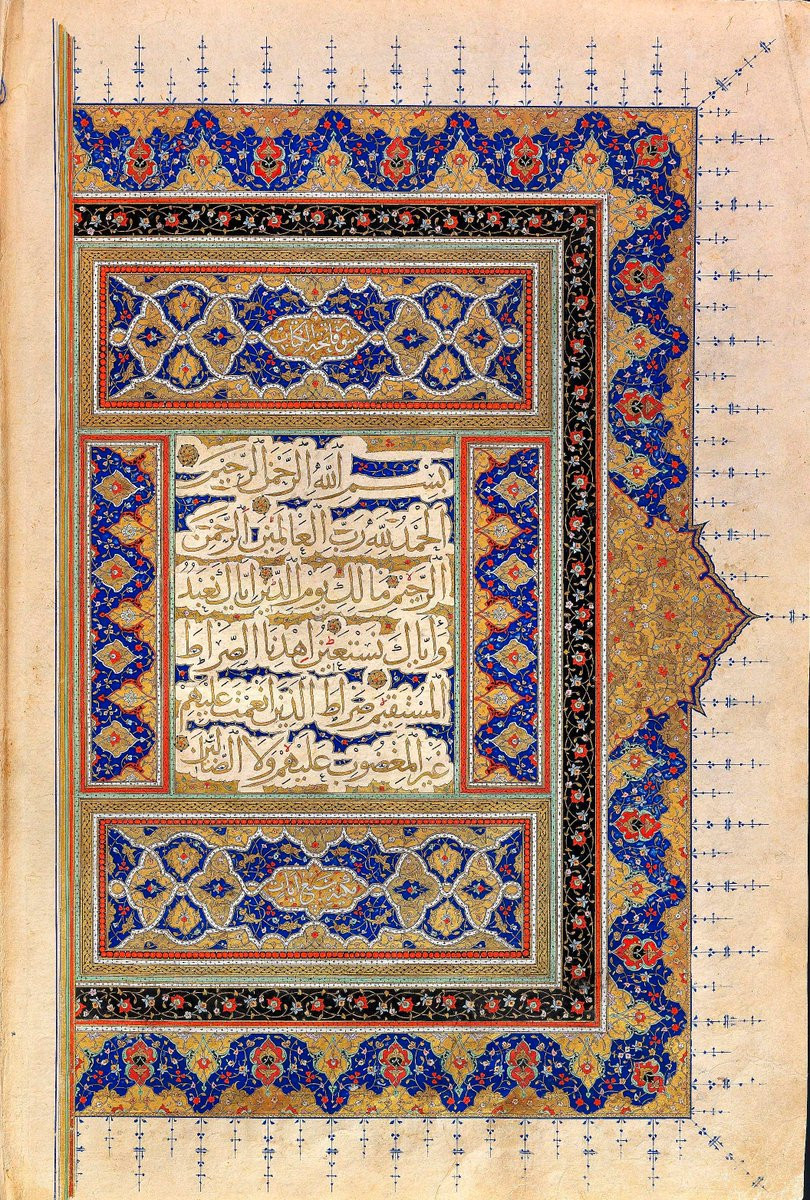 سورة فاتحة الكتاب
بِسْمِ اللَّهِ الرَّحْمَٰنِ الرَّحِيمِ
الْحَمْدُ لِلَّهِ رَبِّ الْعَالَمِينَ الرَّحْمَٰنِ
الرَّحِيمِ مَالِكِ يَوْمِ الدِّينِ إِيَّاكَ نَعْبُدُ
وَإِيَّاكَ نَسْتَعِينُ اهْدِنَا الصِّرَاطَ
الْمُسْتَقِيمَ صِرَاطَ الَّذِينَ أَنْعَمْتَ عَلَيْهِمْ
غَيْرِ الْمَغْضُوبِ عَلَيْهِمْ وَلَا الضَّالِّينَ
سبع آيات